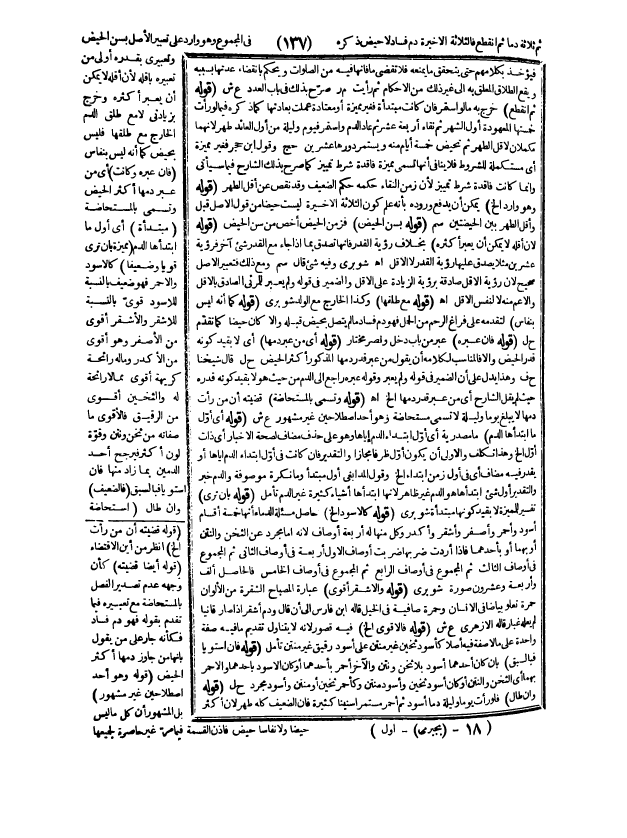 ثم ثلاثة دما ثم انقطع فالثلاثة الاخيرة دم فساد لا حيض ذكره (١٣٧) فى المجموع وهو وارد على تعبير الأصل بسن الحيض
فيؤخذ بكلامهم حتى يتحقق ما يمنعه فلا تقضى ما فاتها فيه من الصلوات ويحكم بانقضاء عدتها بسببه
ويقع الطلاق المعلق به الى غير ذلك من الاحكام ثم رأيت م ر صرح بذلك فى باب العدد ع ش (قوله
ثم انقطع) خرج به ما لو استمر فان كانت مبتدأة فغير مميزة أو معتادة عملت بعادتها كما ذكره فيما لو رأت
خمستها المعهودة أول الشهر ثم نقاء أربعة عشر ثم عاد الدم واستمر فيوم وليلة من أول العائد طهر لانهما
مكملان لاقل الطهر ثم تحيض خمسة أيام منه ويستمر دورها عشرين حج وقول ابن حجر فغير مميزة
أى مستكملة للشروط فلا ينافى أنها تسمى مميزة فاقدة شرط تمييز كما صرح بذلك الشارح فيما سيأتى
وانما كانت فاقدة شرط تمييز لأن زمن النقاء حكمه حكم الضعيف وقد نقص عن أقل الطهر (قوله
وهو وارد الخ) يمكن أن يدفع وروده بأنه على كون الثلاثة الاخيرة ليست حيضا من قول الاصل قبل
وأقل الطهر بين الحيضتين سم (قوله بسن الحيض) فزمن الحيض أخص من سن الحيض (قوله
لان أقله لا يمكن أن يعبر أكثره) بخلاف رؤية القدر فانها تصدق بما اذا جاء مع القدر شئ آخر فرؤية
عشرين مثلا يصدق عليها رؤية القدر لا الاقل اه شوبرى وفيه شئ قال سم ومع ذلك فتعبير الاصل
صحيح لان رؤية الاقل صادقة برؤية الزيادة على الاقل والضمير فى قوله ولم يعبر للمرئى الصادق بالاقل
والاعم منه لا لنفس الاقل اه (قوله مع طلقها) وكذا الخارج مع الولد شوبرى (قوله كما أنه ليس
بنفاس) لتقدمه على فراغ الرحم من الحمل فهو دم فساد ما لم يتصل بحيض قبله والا كان حيضا كما تقدم
ح ل (قوله فان عبره) عبر من باب دخل ونصر مختار (قوله أى من عبر دمها) أى لا بقيد كونه
قدر الحيض والا فالمناسب لكلامه أن يقول من عبر قدر دمها المذكور أكثر الحيض ح ل قال شيخنا
ح ف وهذا يدل على أن الضمير فى قوله ولم يعبر وقوله عبره راجع الى الدم من حيث هو لا بقيد كونه قدره
حيث لم يقل الشارح أى من عبر قدر دمها الخ اه (قوله وتسمى بالمستحاضة) قضيته أن من رأت
دما لا يبلغ يوما وليلة لا تسمى مستحاضة وهو أحد اصطلاحين غير مشهور ع ش (قوله أى أول
ما ابتدأها الدم) ما مصدرية أى أول ابتداء الدم اياها وهو على حذف مضاف لصحة الاخبار أى ذات
أول الخ وهذا تكلف والاولى أن يكون أول ظرفا مجازا والتقدير فان كانت فى أول ابتداء الدم اياها أو
يقدر فيه مضاف أى فى أول زمن ابتداء الخ وقول المدابغى أول مبتدأ وما نكرة موصوفة والدم خبر
والتقدير أول شئ ابتدأها هو الدم غير ظاهر لانها ابتدأها أشياء كثيرة غير الدم تأمل (قوله بان ترى)
تفسير للمميزة لا بقيد كونها مبتدأة شوبرى (قوله كالاسود الخ) حاصل مسئلة الدماء أنها خمسة أقسام
أسود وأحمر وأصفر وأشقر وأكدر وكل منها له أربعة أوصاف لانه اما مجرد عن الثخن والنتن
أو بهما أو بأحدهما فاذا أردت ضربها ضربت أوصاف الاول أربعة فى أوصاف الثانى ثم المجموع
فى أوصاف الثالث ثم المجموع فى أوصاف الرابع ثم المجموع فى أوصاف الخامس فالحاصل ألف
وأربعة وعشرون صورة شوبرى (قوله والاشقر أقوى) عبارة المصباح الشقرة من الألوان
حمرة تعلو بياضا فى الانسان وحمرة صافية فى الخيل قاله ابن فارس الى أن قال ودم أشقر اذا صار قانيا
لم يعله غبار قاله الازهرى ع ش (قوله فالاقوى الخ) فيه قصور لانه لا يتناول تقديم ما فيه صفة
واحدة على ما لا صفة فيه أصلا كأسود ثخين غير منتن على أسود رقيق غير منتن تأمل (قوله فان استويا
فبالسبق) بان كان أحدهما أسود بلا ثخن ونتن والآخر أحمر بأحدهما أو كان الاسود باحدهما والاحمر
بهما أى الثخن والنتن أو كان أسود ثخين وأسود منتن وكأحمر ثخين أو منتن وأسود مجرد ح ل (قوله
وان طال) فلو رأت يوما وليلة دما أسود ثم أحمر مستمرا سنينا كثيرة فان الضعيف كله طهر لان أكثر
وتعبيرى بقدره أولى من
تعبيره باقله لأن أقله لا يمكن
أن يعبر أكثره وخرج
بزيادتى لا مع طلق الدم
الخارج مع طلقها فليس
بحيض كما أنه ليس بنفاس
(فان عبره وكانت) أى من
عبر دمها أكثر الحيض
وتسمى بالمستحاضة
(مبتدأة) أى أول ما
ابتدأها الدم (مميزة بان ترى
قويا وضعيفا) كالاسود
والاحمر فهو ضعيف بالنسبة
للاسود قوى بالنسبة
للاشقر والأشقر أقوى
من الأصفر وهو أقوى
من الأكدر وما له رائحة
كريهة أقوى مما لا رائحة
له والثخين أقوى
من الرقيق فالأقوى ما
صفاته من ثخن ونتن وقوة
لون أكثر فيرجح أحد
الدمين بما زاد منها فان
استويا فبالسبق (فالضعيف)
وان طال (استحاضة
(قوله قضيته أن من رأت
الخ) انظر من أين الاقتضاء
(قوله أيضا قضيته) كأن
وجهه عدم تصدير الفصل
بالمستحاضة مع تعبيره فيما
تقدم بقوله فهو دم فساد
فكأنه جار على من يقول
بانها من جاوز دمها أكثر
الحيض (قوله وهو أحد
اصطلاحين غير مشهور)
بل المشهور أن كل ما ليس
حيضا ولا نفاسا حيض فاذن القسمة فيما مر غير حاصرة لجميعها
(١٨ - (بجيرى) - اول)